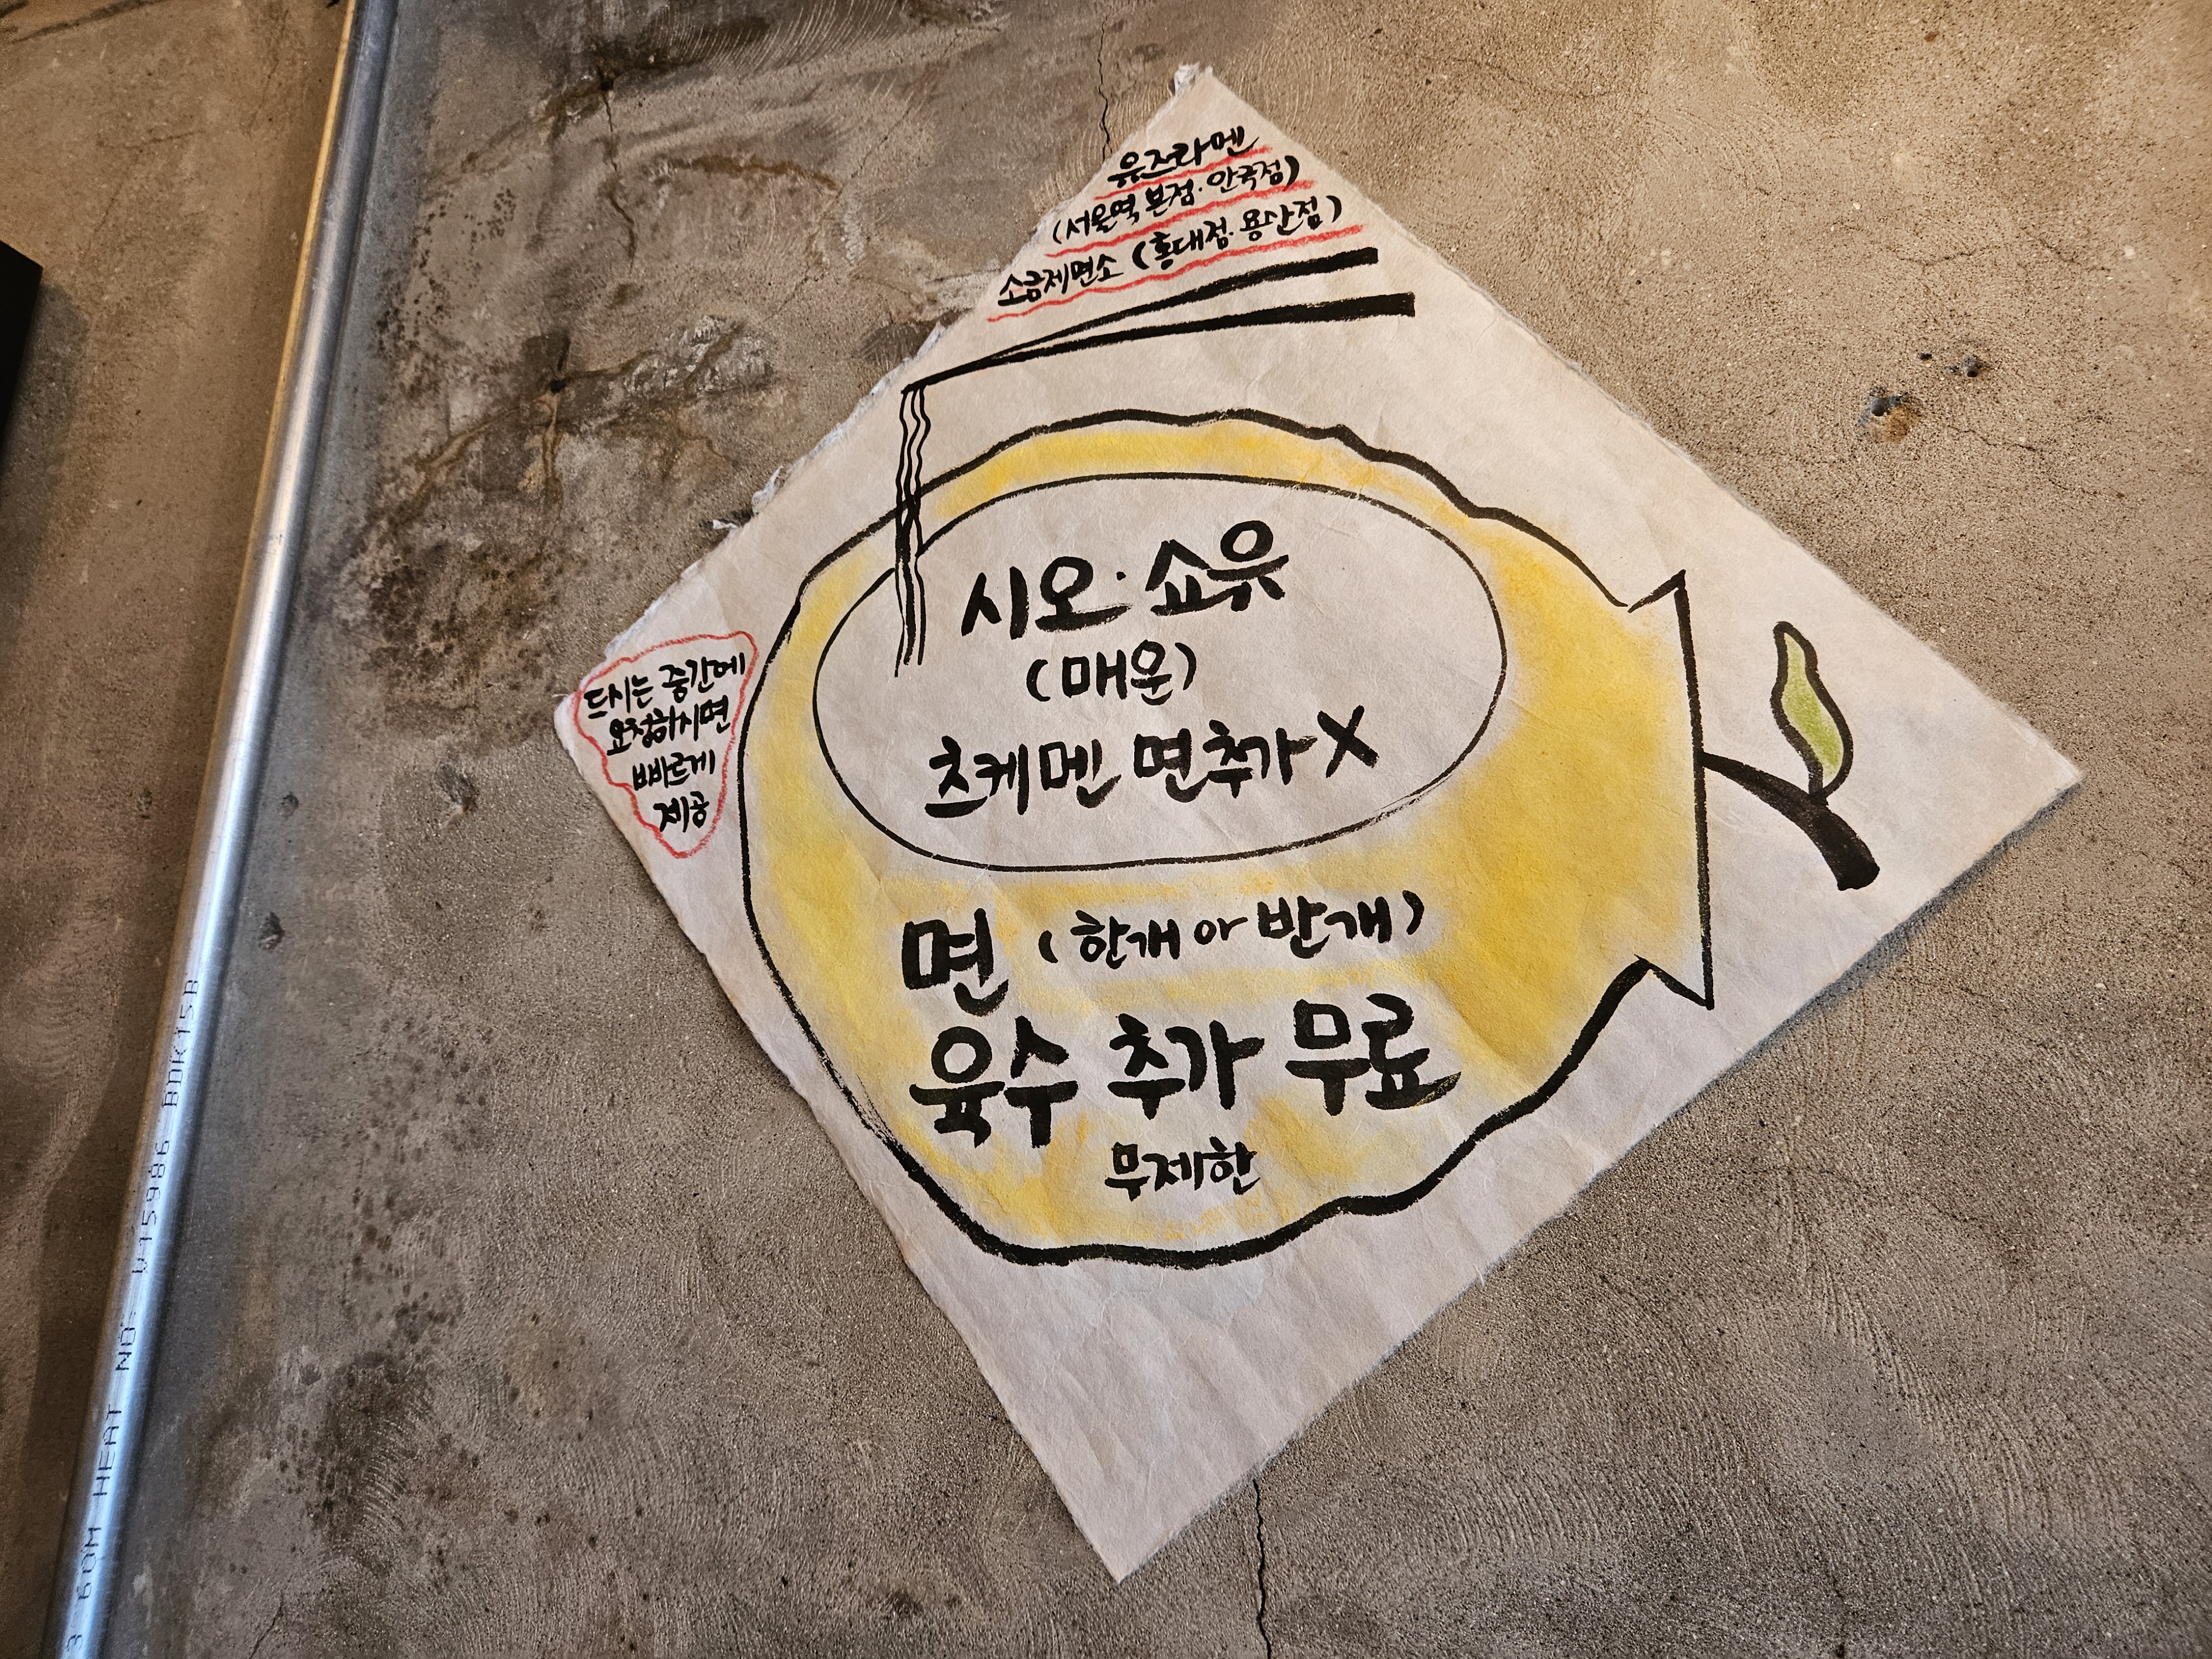 유즈라멘
(서울역 본점·안국점)
소금제면소 (홍대점·용산점)
시오·쇼유
(매운)
츠케멘 면추가X
드시는 중간에
요청하시면
빠르게
제공
면 (한개 or 반개)
육수 추가 무료
무제한
3 60M HEAT NO- U15986 BDK15B